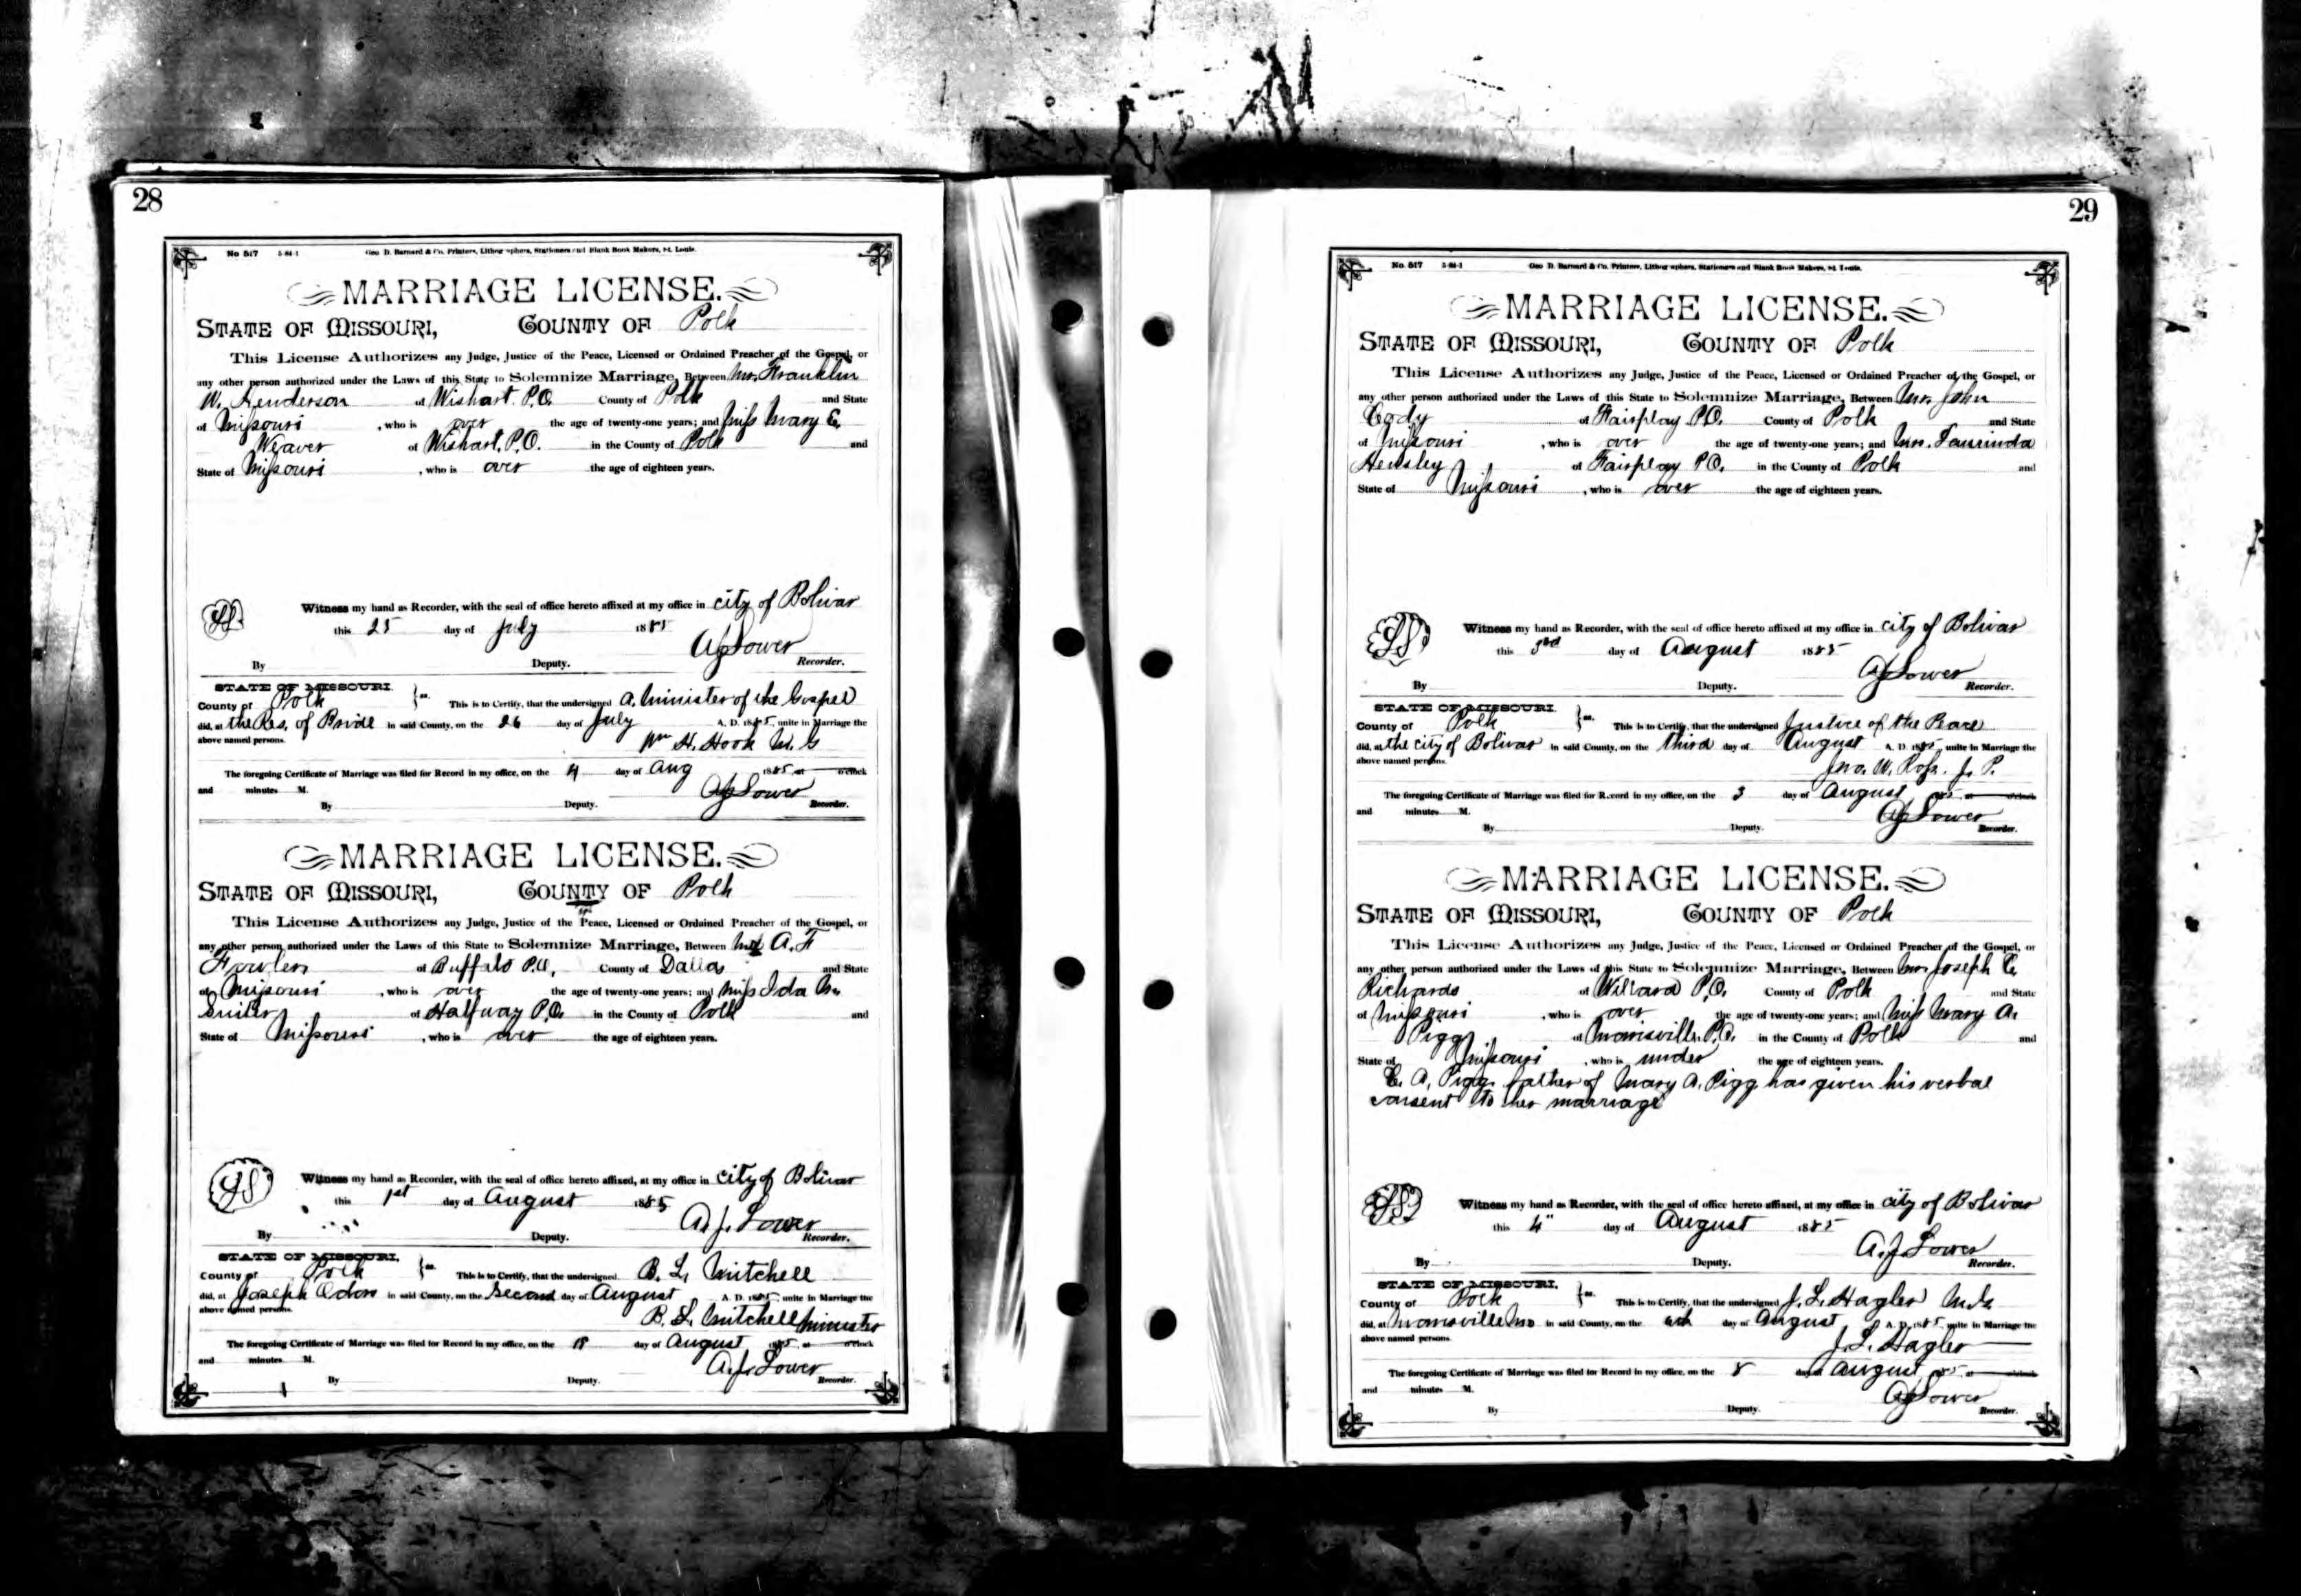 28
No 517 5-84-1 Geo D. Barnard & Co. Printers, Lithographers, Stationers and Blank Book Makers, St. Louis.
MARRIAGE LICENSE.
STATE OF MISSOURI, COUNTY OF Polk
This License Authorizes any Judge, Justice of the Peace, Licensed or Ordained Preacher of the Gospel, or
any other person authorized under the Laws of this State to Solemnize Marriage, Between Mr. Franklin
W. Henderson of Wishart P.O. County of Polk and State
of Missouri, who is over the age of twenty-one years; and Miss Mary E.
Weaver of Wishart, P.O. in the County of Polk and
State of Missouri, who is over the age of eighteen years.
Witness my hand as Recorder, with the seal of office hereto affixed at my office in city of Bolivar
this 25 day of July 1885
AJ Lower
By Deputy. Recorder.
STATE OF MISSOURI
County of Polk } ss. This is to Certify, that the undersigned A. Minister of the Gospel
did, at the Res. of Bride in said County, on the 26 day of July A. D. 1885, unite in Marriage the
above named persons.
Wm H. Hook M. G
The foregoing Certificate of Marriage was filed for Record in my office, on the 4 day of Aug 1885, at o'clock
and minutes M. AJ Lower
By Deputy. Recorder.
MARRIAGE LICENSE.
STATE OF MISSOURI, COUNTY OF Polk
This License Authorizes any Judge, Justice of the Peace, Licensed or Ordained Preacher of the Gospel, or
any other person authorized under the Laws of this State to Solemnize Marriage, Between Mr A. F
Fowler of Buffalo P.O. County of Dallas and State
of Missouri, who is over the age of twenty-one years; and Miss Ida M.
of Halfway P.O. in the County of Polk and
State of Missouri, who is over the age of eighteen years.
Witness my hand as Recorder, with the seal of office hereto affixed, at my office in city of Bolivar
this 1st day of August 1885
A. J. Lower
By Deputy. Recorder.
STATE OF MISSOURI,
County of Polk } ss. This is to Certify, that the undersigned B. L. Mitchell
did, at Joseph Odom in said County, on the Second day of August A. D. 1885, unite in Marriage the
above named persons. B. L. Mitchell Minister
The foregoing Certificate of Marriage was filed for Record in my office, on the day of August 1885, at o'clock
and minutes M. A. J. Lower
By Deputy. Recorder.
29
No. 517 5-84-1 Geo D. Barnard & Co. Printers, Lithographers, Stationers and Blank Book Makers, St Louis.
MARRIAGE LICENSE.
STATE OF MISSOURI, COUNTY OF Polk
This License Authorizes any Judge, Justice of the Peace, Licensed or Ordained Preacher of the Gospel, or
any other person authorized under the Laws of this State to Solemnize Marriage, Between Mr. John
Cody of Fairplay P.O. County of Polk and State
of Missouri, who is over the age of twenty-one years; and Mrs. Laurinda
Hensley of Fairplay P.O. in the County of Polk and
State of Missouri, who is over the age of eighteen years.
Witness my hand as Recorder, with the seal of office hereto affixed at my office in city of Bolivar
this 3rd day of August 1885
AJ Lower
By Deputy. Recorder.
STATE OF MISSOURI
County of Polk } ss. This is to Certify, that the undersigned Justice of the Peace
did, at the city of Bolivar in said County, on the third day of August A. D. 1885, unite in Marriage the
above named persons. Jno. W. Ross. J. P.
The foregoing Certificate of Marriage was filed for Record in my office, on the 3 day of August 1885, at o'clock
and minutes M. AJ Lower
By Deputy. Recorder.
MARRIAGE LICENSE.
STATE OF MISSOURI, COUNTY OF Polk
This License Authorizes any Judge, Justice of the Peace, Licensed or Ordained Preacher of the Gospel, or
any other person authorized under the Laws of this State to Solemnize Marriage, Between Mr. Joseph C.
Richards of Willard P.O. County of Polk and State
of Missouri, who is over the age of twenty-one years; and Miss Mary A.
Pigg of Morrisville P.O. in the County of Polk and
State of Missouri, who is under the age of eighteen years.
C. A. Pigg father of Mary A. Pigg has given his verbal
consent to her marriage
Witness my hand as Recorder, with the seal of office hereto affixed, at my office in city of Bolivar
this 4" day of August 1885
A. J. Lower
By Deputy. Recorder.
STATE OF MISSOURI,
County of Polk } ss. This is to Certify, that the undersigned J. L. Hagler M.G.
did, at Morrisville Mo in said County, on the day of August A. D. 1885, unite in Marriage the
above named persons. J. L. Hagler
The foregoing Certificate of Marriage was filed for Record in my office, on the 8 day of August 1885, at o'clock
and minutes M. AJ Lower
By Deputy. Recorder.